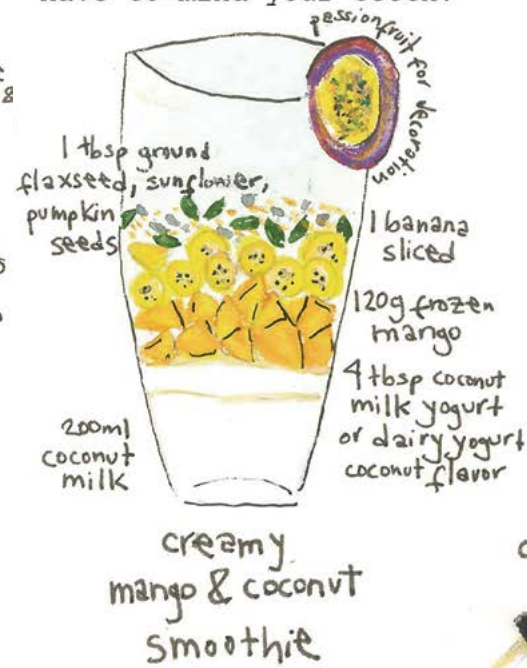 passionfruit for decoration
1 tbsp ground
flaxseed, sunflower,
pumpkin
seeds
1 banana
sliced
120g frozen
mango
4 tbsp coconut
milk yogurt
or dairy yogurt
coconut flavor
200ml
coconut
milk
creamy
mango & coconut
smoothie